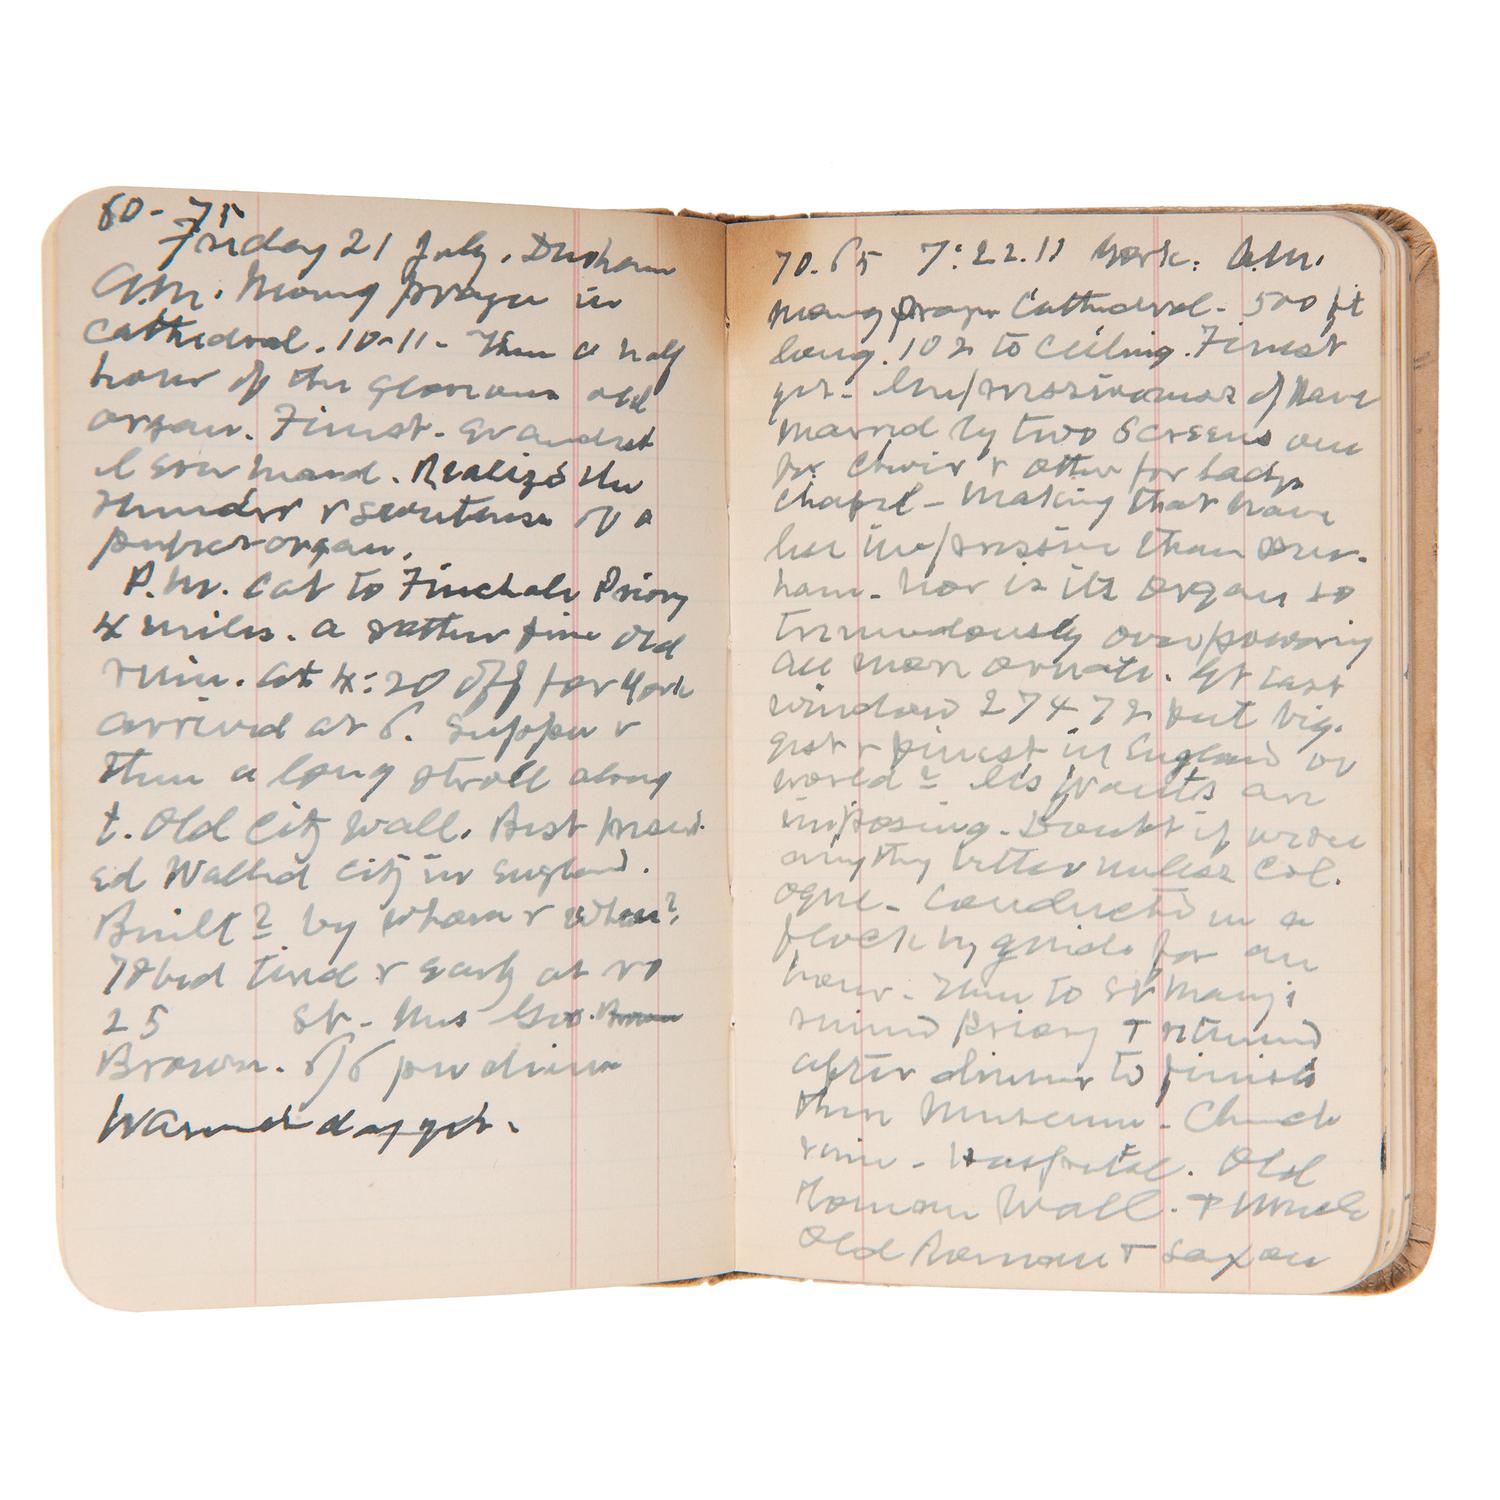 60-75
Friday 21 July. Durham
A.M. Morning prayer in
Cathedral. 10-11- Then a half
hour of the glorious old
organ. Finest - grandest
I ever heard. Realize the
thunder & sweetness of a
perfect organ.
P.M. Cab to Finchale Priory
4 miles. A rather fine old
ruin. At 4:20 off for York
arrived at 6. Supper &
then a long stroll along
t. Old City Wall. Best preserv-
ed Walled City in England.
Built? by whom & when?
To bed tired & early at
25 St. - Mrs Geo.
Brown. 6/6 per diem
Warmest day yet.
70.65 7:22.11 York: A.M.
Morng prayer Cathedral - 500 ft
long. 102 to Ceiling. Finest
yet - Impressiveness of Nave
marred by two Screens one
for Choir & other for Lady
Chapel - Making that have
less impressive than Dur-
ham. Nor is its organ so
tremendously overpowering
all more ornate. Gt East
window 27 + 72 feet big-
gest & finest in England or
world? Its Vaults are
imposing. Doubt if wrou
anything better unless Col-
ogne. Conducted in a
flock by guide for an
hour. Then to St Mary's
ruined Priory & returned
after dinner to finish
then Museum - Church
ruin - Hospital. Old
Roman Wall. & Much
Old Roman & Saxon